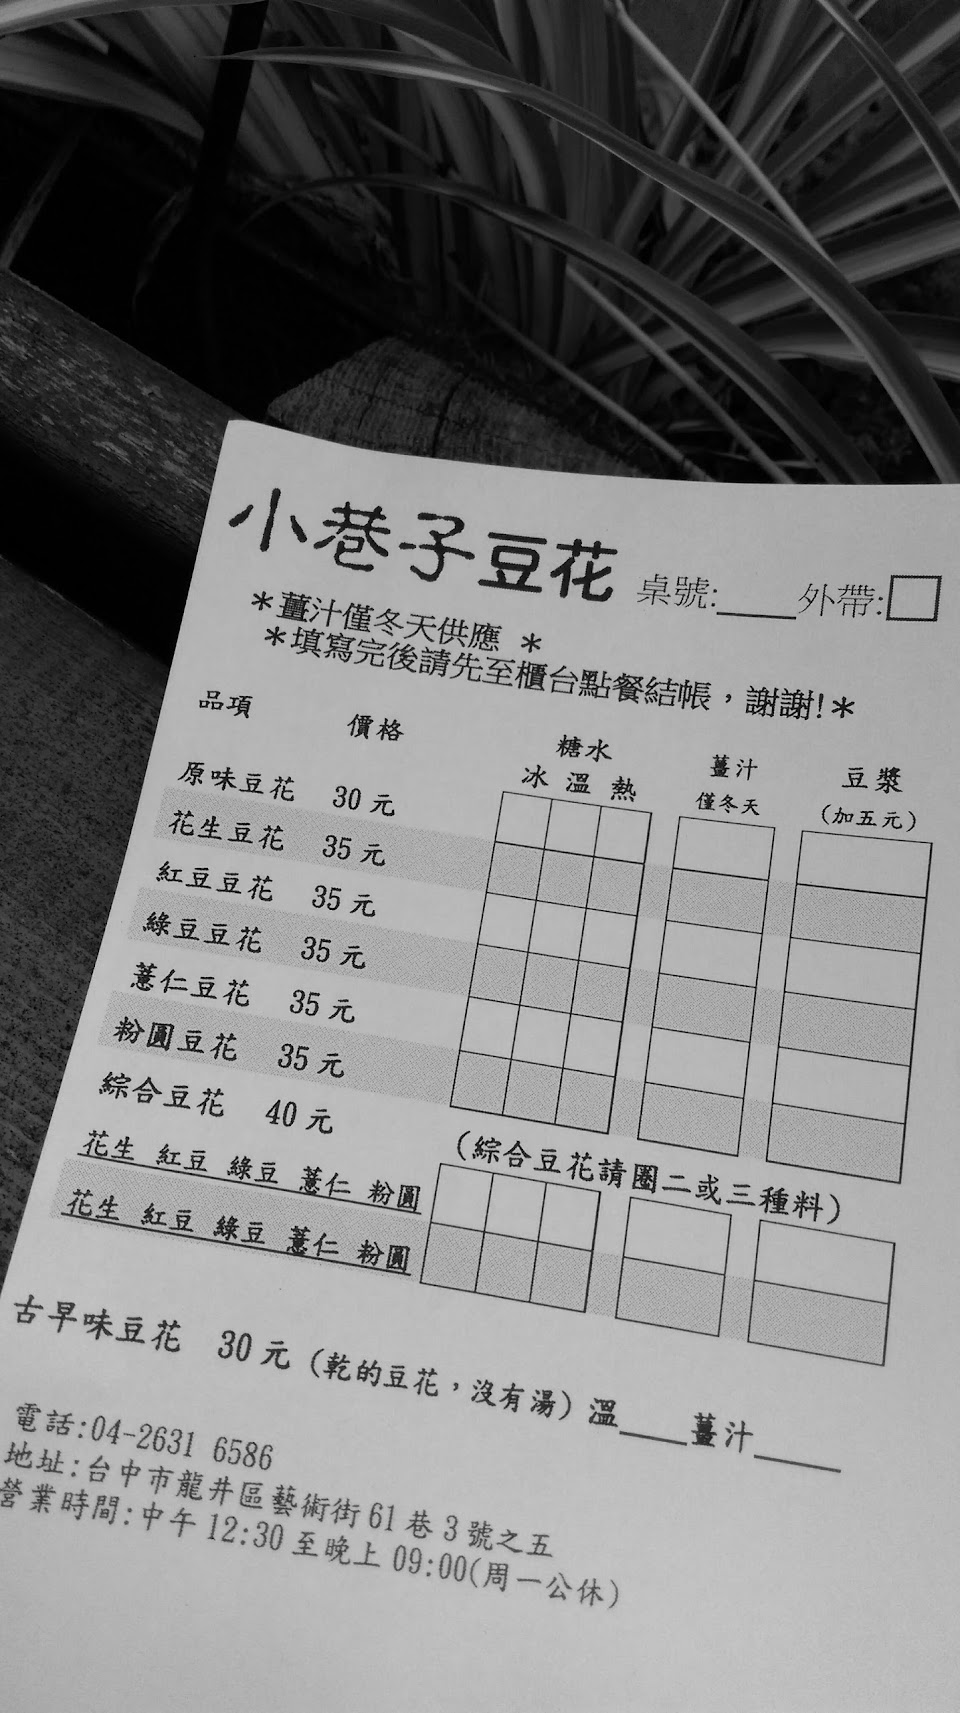 小巷子豆花 桌號:____ 外帶:□
＊薑汁僅冬天供應 ＊
＊填寫完後請先至櫃台點餐結帳，謝謝!＊
品項 價格 糖水 薑汁 豆漿
冰 溫 熱 僅冬天 (加五元)
原味豆花 30 元
花生豆花 35 元
紅豆豆花 35 元
綠豆豆花 35 元
薏仁豆花 35 元
粉圓豆花 35 元
綜合豆花 40 元 (綜合豆花請圈二或三種料)
花生 紅豆 綠豆 薏仁 粉圓
花生 紅豆 綠豆 薏仁 粉圓
古早味豆花 30 元 (乾的豆花，沒有湯) 溫____薑汁____
電話:04-2631 6586
地址:台中市龍井區藝術街 61 巷 3 號之五
營業時間:中午 12:30 至晚上 09:00(周一公休)